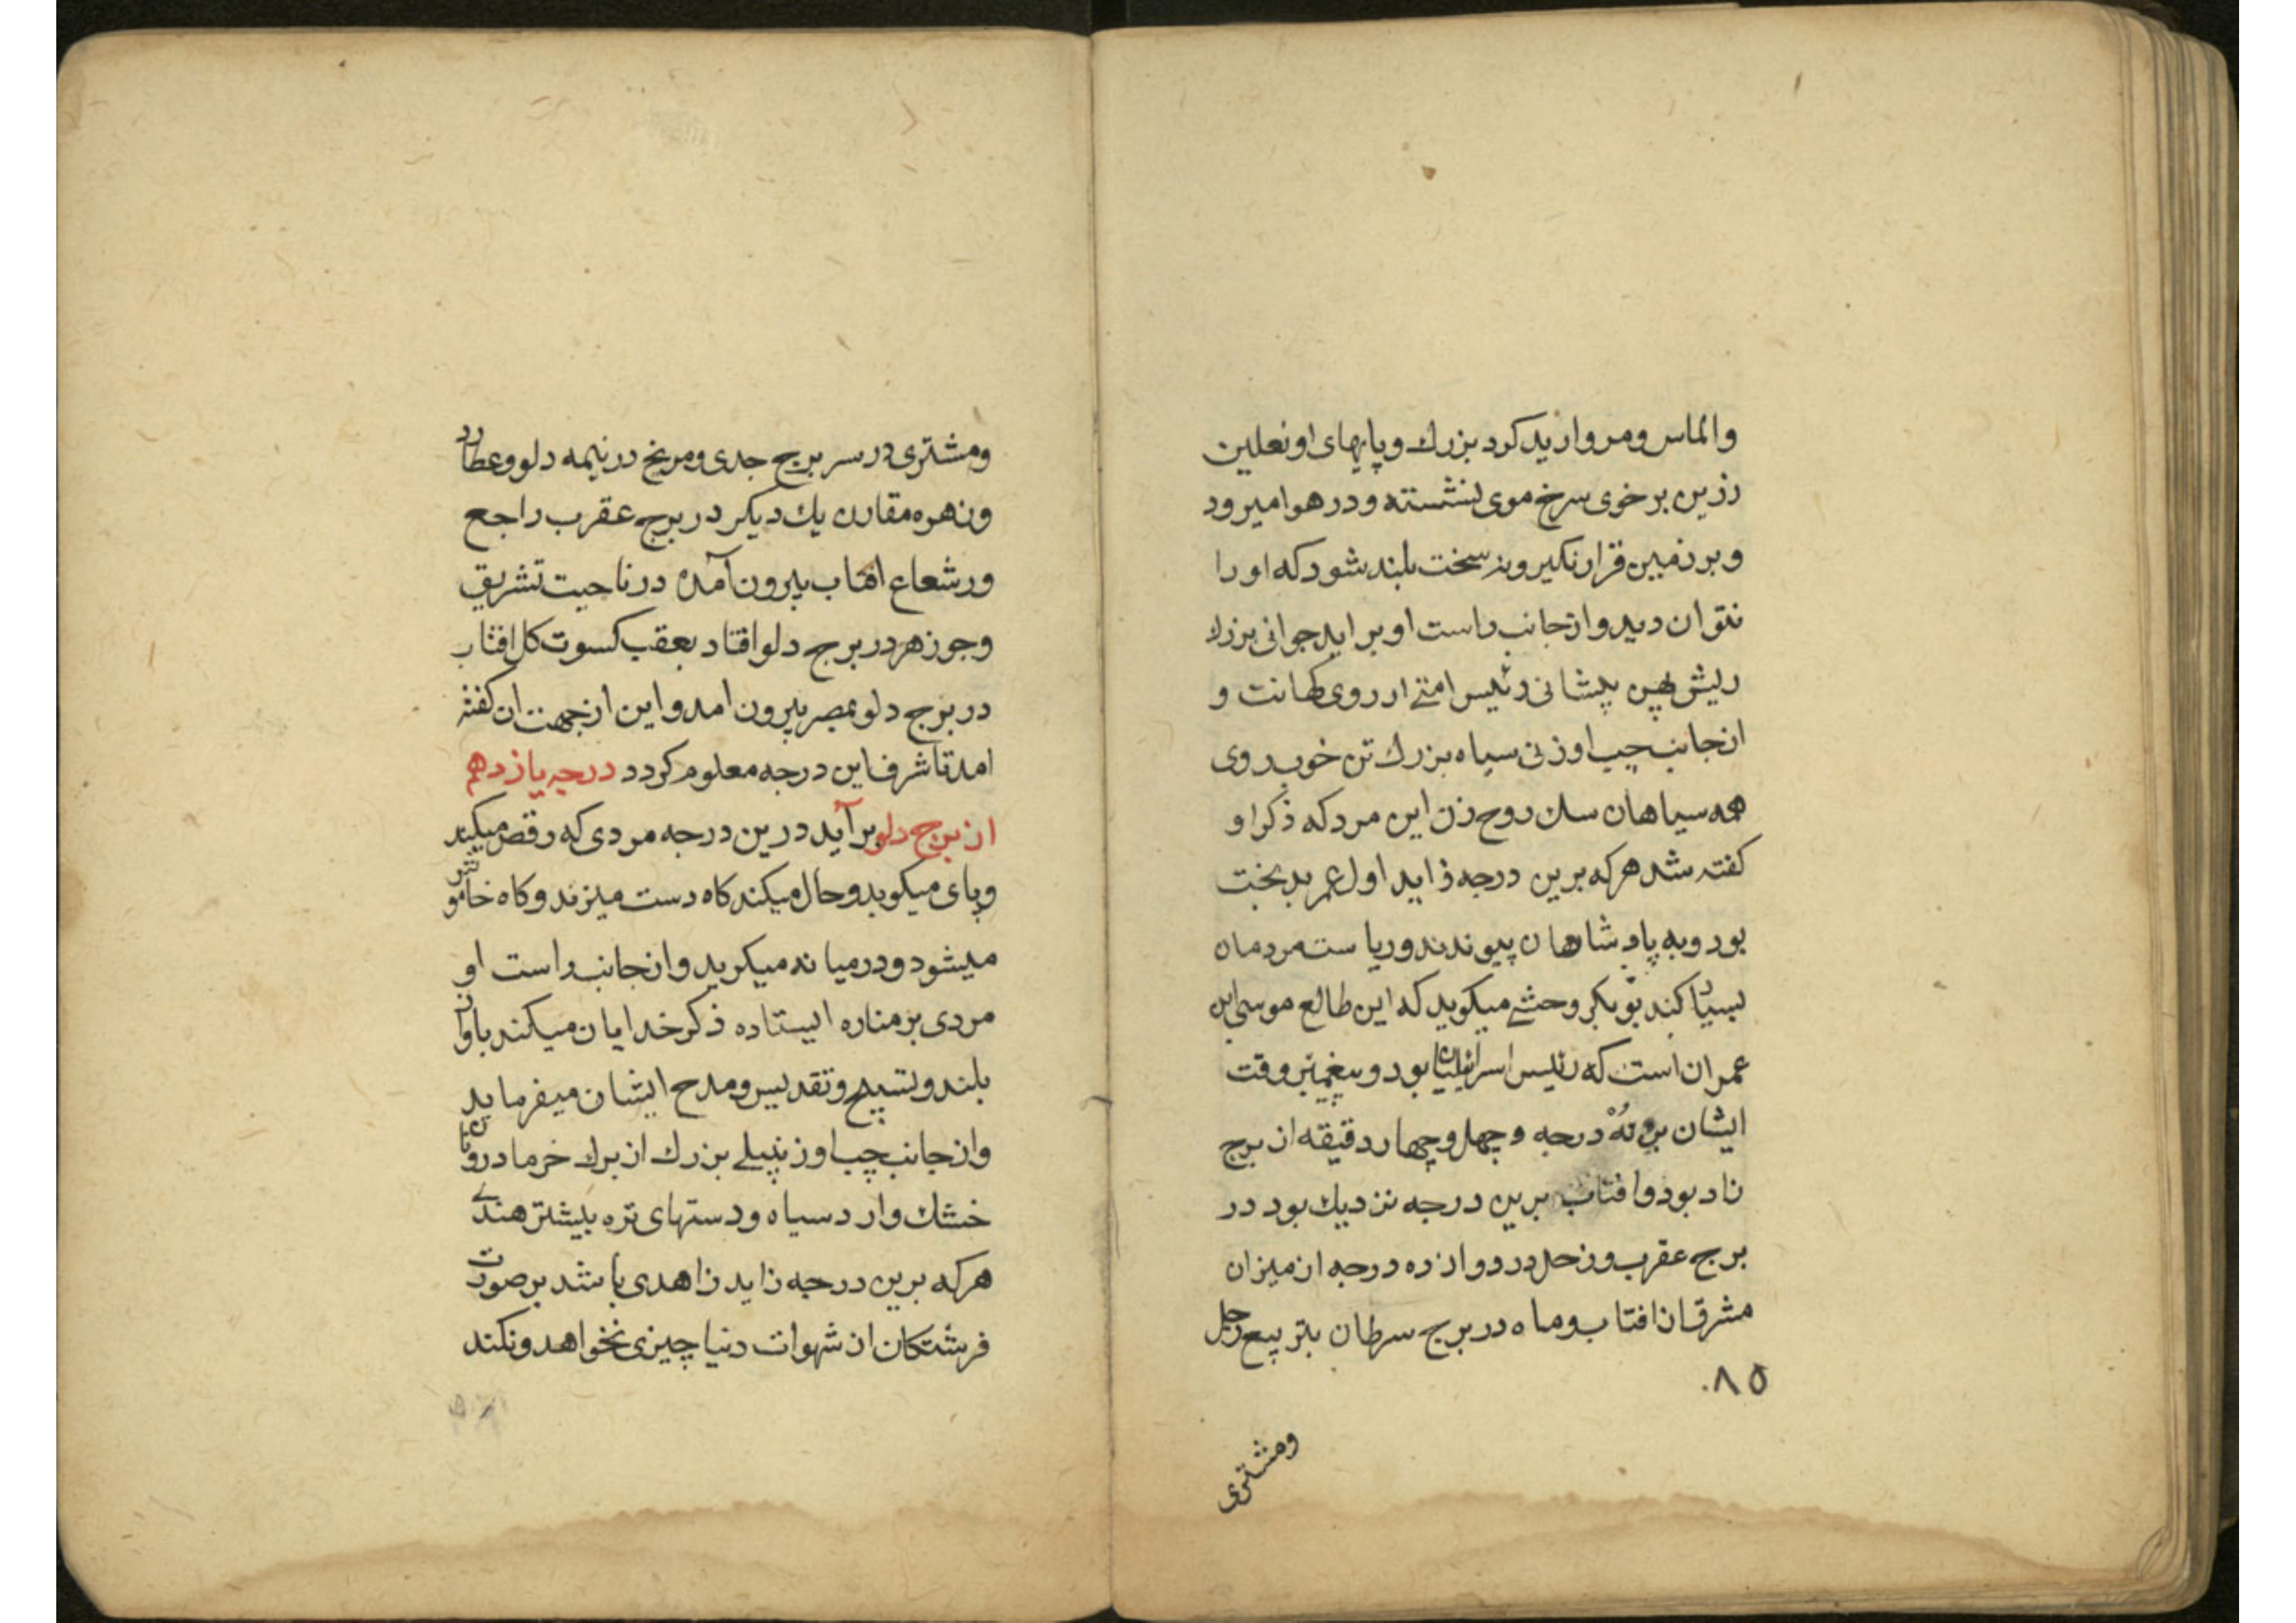 والماس ومروارید کرد بزرك وپایهای او نعلین
زرین بر خوی سرخ موی نشسته ودر هوا میرود
وبر زمین قرار نکیرد سخت بلند شود که او را
نتوان دید واز جانب راست او براید جوانی بزرك
ریش پهن پیشانی رئیس امتے از روی کهانت و
از جانب چپ او زنی سیاه بزرك تن خوب روی
همه سیاهان روح زن این مرد که ذکر او
کفته شد هرکه برین درجه زاید اول عمر بدبخت
بود وبه پادشاهان پیوندند وریاست مردمان
بسیار کند بوبکر وحشے میکوید که این طالع موسی ابن
عمران است که رئیس اسرائیلیان بود وپیغمبر وقت
ایشان برو نُهْ درجه وچهل وچهار دقیقه از برج
زاد بود وافتاب برین درجه نزدیك بود در
برج عقرب وزحل در دوازده درجه از میزان
مشرق از افتاب وماه در برج سرطان بتربیع زحل
۸۵
ومشتری
ومشتری در سر برج جدی ومریخ در نیمه دلو وعطارد
وزهره مقارن یك دیکر در برج عقرب راجع
ورشعاع افتاب بیرون آمده در ناحیت تشریق
وجوزهر در برج دلو افتاد بعقب کسوت کل افتاب
در برج دلو بمصر بیرون امد واین از جهت ان کفته
امد تا شرف این درجه معلوم کردد درجه یازدهم
از برج دلو برآید درین درجه مردی که رقص میکند
وپای میکوبد وحال میکند کاه دست میزند وکاه خاموش
میشود ودر میانه میکرید واز جانب راست او
مردی بر مناره ایستاده ذکر خدایان میکند باواز
بلند وتسبیح وتقدیس ومدح ایشان میفرماید
واز جانب چپ او زنبیلے بزرك از برك خرما درو
خشك وارد سیاه ودستهای تره بیشتر هندے
هرکه برین درجه زاید زاهدی باشد بر صورت
فرشتکان از شهوات دنیا چیزی نخواهد ونکند